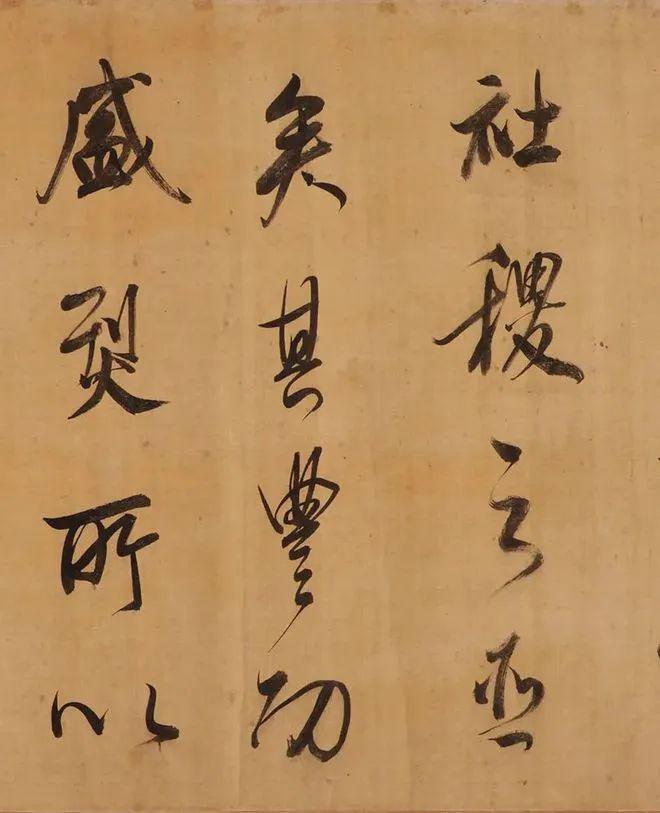 社稷之臣
矣其豐功
盛烈所以